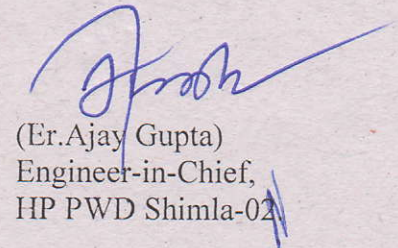 (Er.Ajay Gupta)
Engineer-in-Chief,
HP PWD Shimla-02.